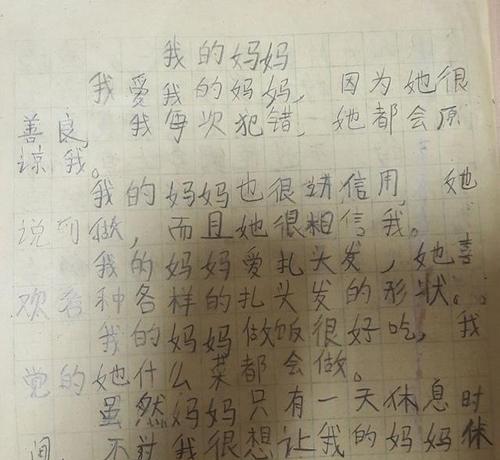 我的妈妈
我爱我的妈妈，因为她很
善良，我每次犯错，她都会原
谅我。
我的妈妈也很讲信用，她
说到做，而且她很相信我。
我的妈妈爱扎头发，她喜
欢各种各样的扎头发的形状。
我的妈妈做饭很好吃，我
觉的她什么菜都会做。
虽然妈妈只有一天休息时
间，不过我很想让我的妈妈休